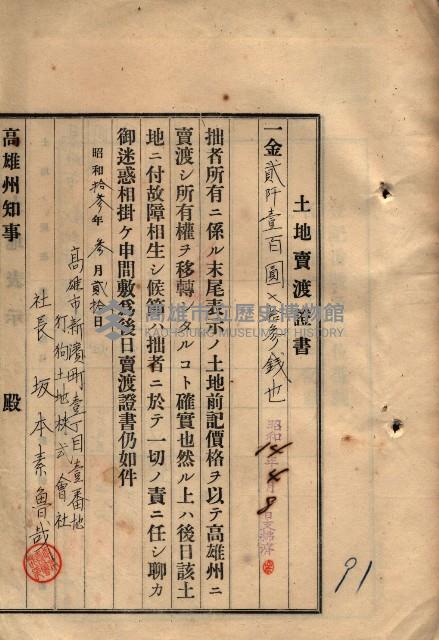 土地賣渡證書
一金貳阡壹百圓七拾參錢也
昭和14年4月8日支拂濟
拙者所有ニ係ル末尾表示ノ土地前記價格ヲ以テ高雄州ニ
賣渡シ所有權ヲ移轉シタルコト確實也然ル上ハ後日該土
地ニ付故障相生シ候節ハ拙者ニ於テ一切ノ責ニ任シ聊カ
御迷惑相掛ケ申間敷爲後日賣渡證書仍如件
昭和拾參年 參月貳拾日
高雄市新濱町壹丁目壹番地
打狗土地株式會社
社長 坂本素魯哉
高雄州知事 殿
91
高雄市立歷史博物館
KAOHSIUNG MUSEUM OF HISTORY